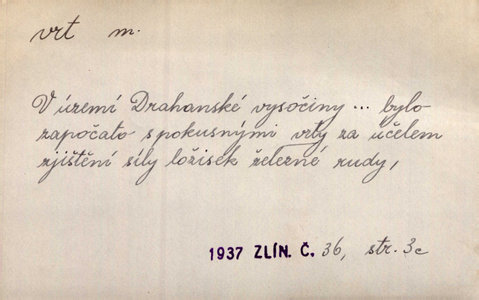 vrt m.
V území Drahanské vysočiny ... bylo
započato s pokusnými vrty za účelem
zjištění síly ložisek železné rudy,
1937 ZLÍN. Č. 36, str. 3c